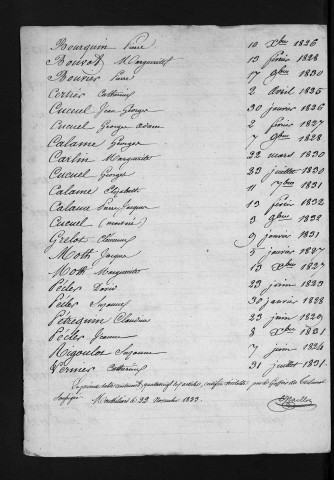 Bourquin Pierre 10 Xbre 1826
Bouvot Marguerite 13 février 1828
Bouvier Pierre 17 9bre 1830
Certier Catherine 2 Avril 1825
Cucuel Jean George 30 janvier 1826
Cucuel George adam 2 février 1827
Calame George 7 9bre 1828
Carlin Marguerite 22 mars 1830
Cucuel George 23 juillet 1830
Calame Elizabeth 11 7bre 1831
Calame Pierre Jacques 13 février 1832
Cucuel (mort né) 3 9bre 1832
Grelot Clémence 9 janvier 1831
Moth Jacques 5 janvier 1827
Moth Marguerite 13 Xbre 1827
Péclet David 23 1823
Péclet Suzanne 30 janvier 1828
Pétrequin Claudine 23 juin 1829
Péclet Jeanne 8 Xbre 1831
Rigoulot Suzanne 7 juin 1824
Vernier Catherine 31 juillet 1831
La présente table contenant articles, certifiée véritable par le Greffier du Tribunal
soussigné Montbéliard le 22 Novembre 1833.